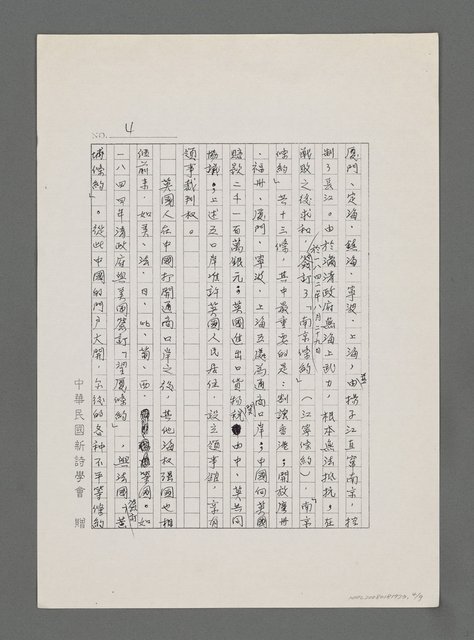 NO. 4
廈門、定海、鎮海、寧波、上海，並由揚子江直窜南京，控
制了長江。由於滿清政府無海上武力，根本無法抵抗，在
戰敗之後求和，於一八四二年八月二十九日簽訂了「南京條約」（江寧條約），「南京
條約」共十三條，其中最重要的是：割讓香港；開放廣州
、福州、廈門、寧波、上海五處為通商口岸；中國向英國
賠款二千一百萬銀元；英國進出口貨物關稅由中、英共同
協議；上述五口岸准許英國人民居住，設立領事館，享有
領事裁判权。
英國人在中國打開通商口岸之後，其他海权強國也相
繼前來，如美、法、日、比、葡、西、等國。如
一八四四年清政府與美國簽訂「望廈條約」，與法國簽訂「黃
埔條約」。從此中國的門戶大開，尔後的各种不平等條約
中華民國新詩學會 贈
4/9